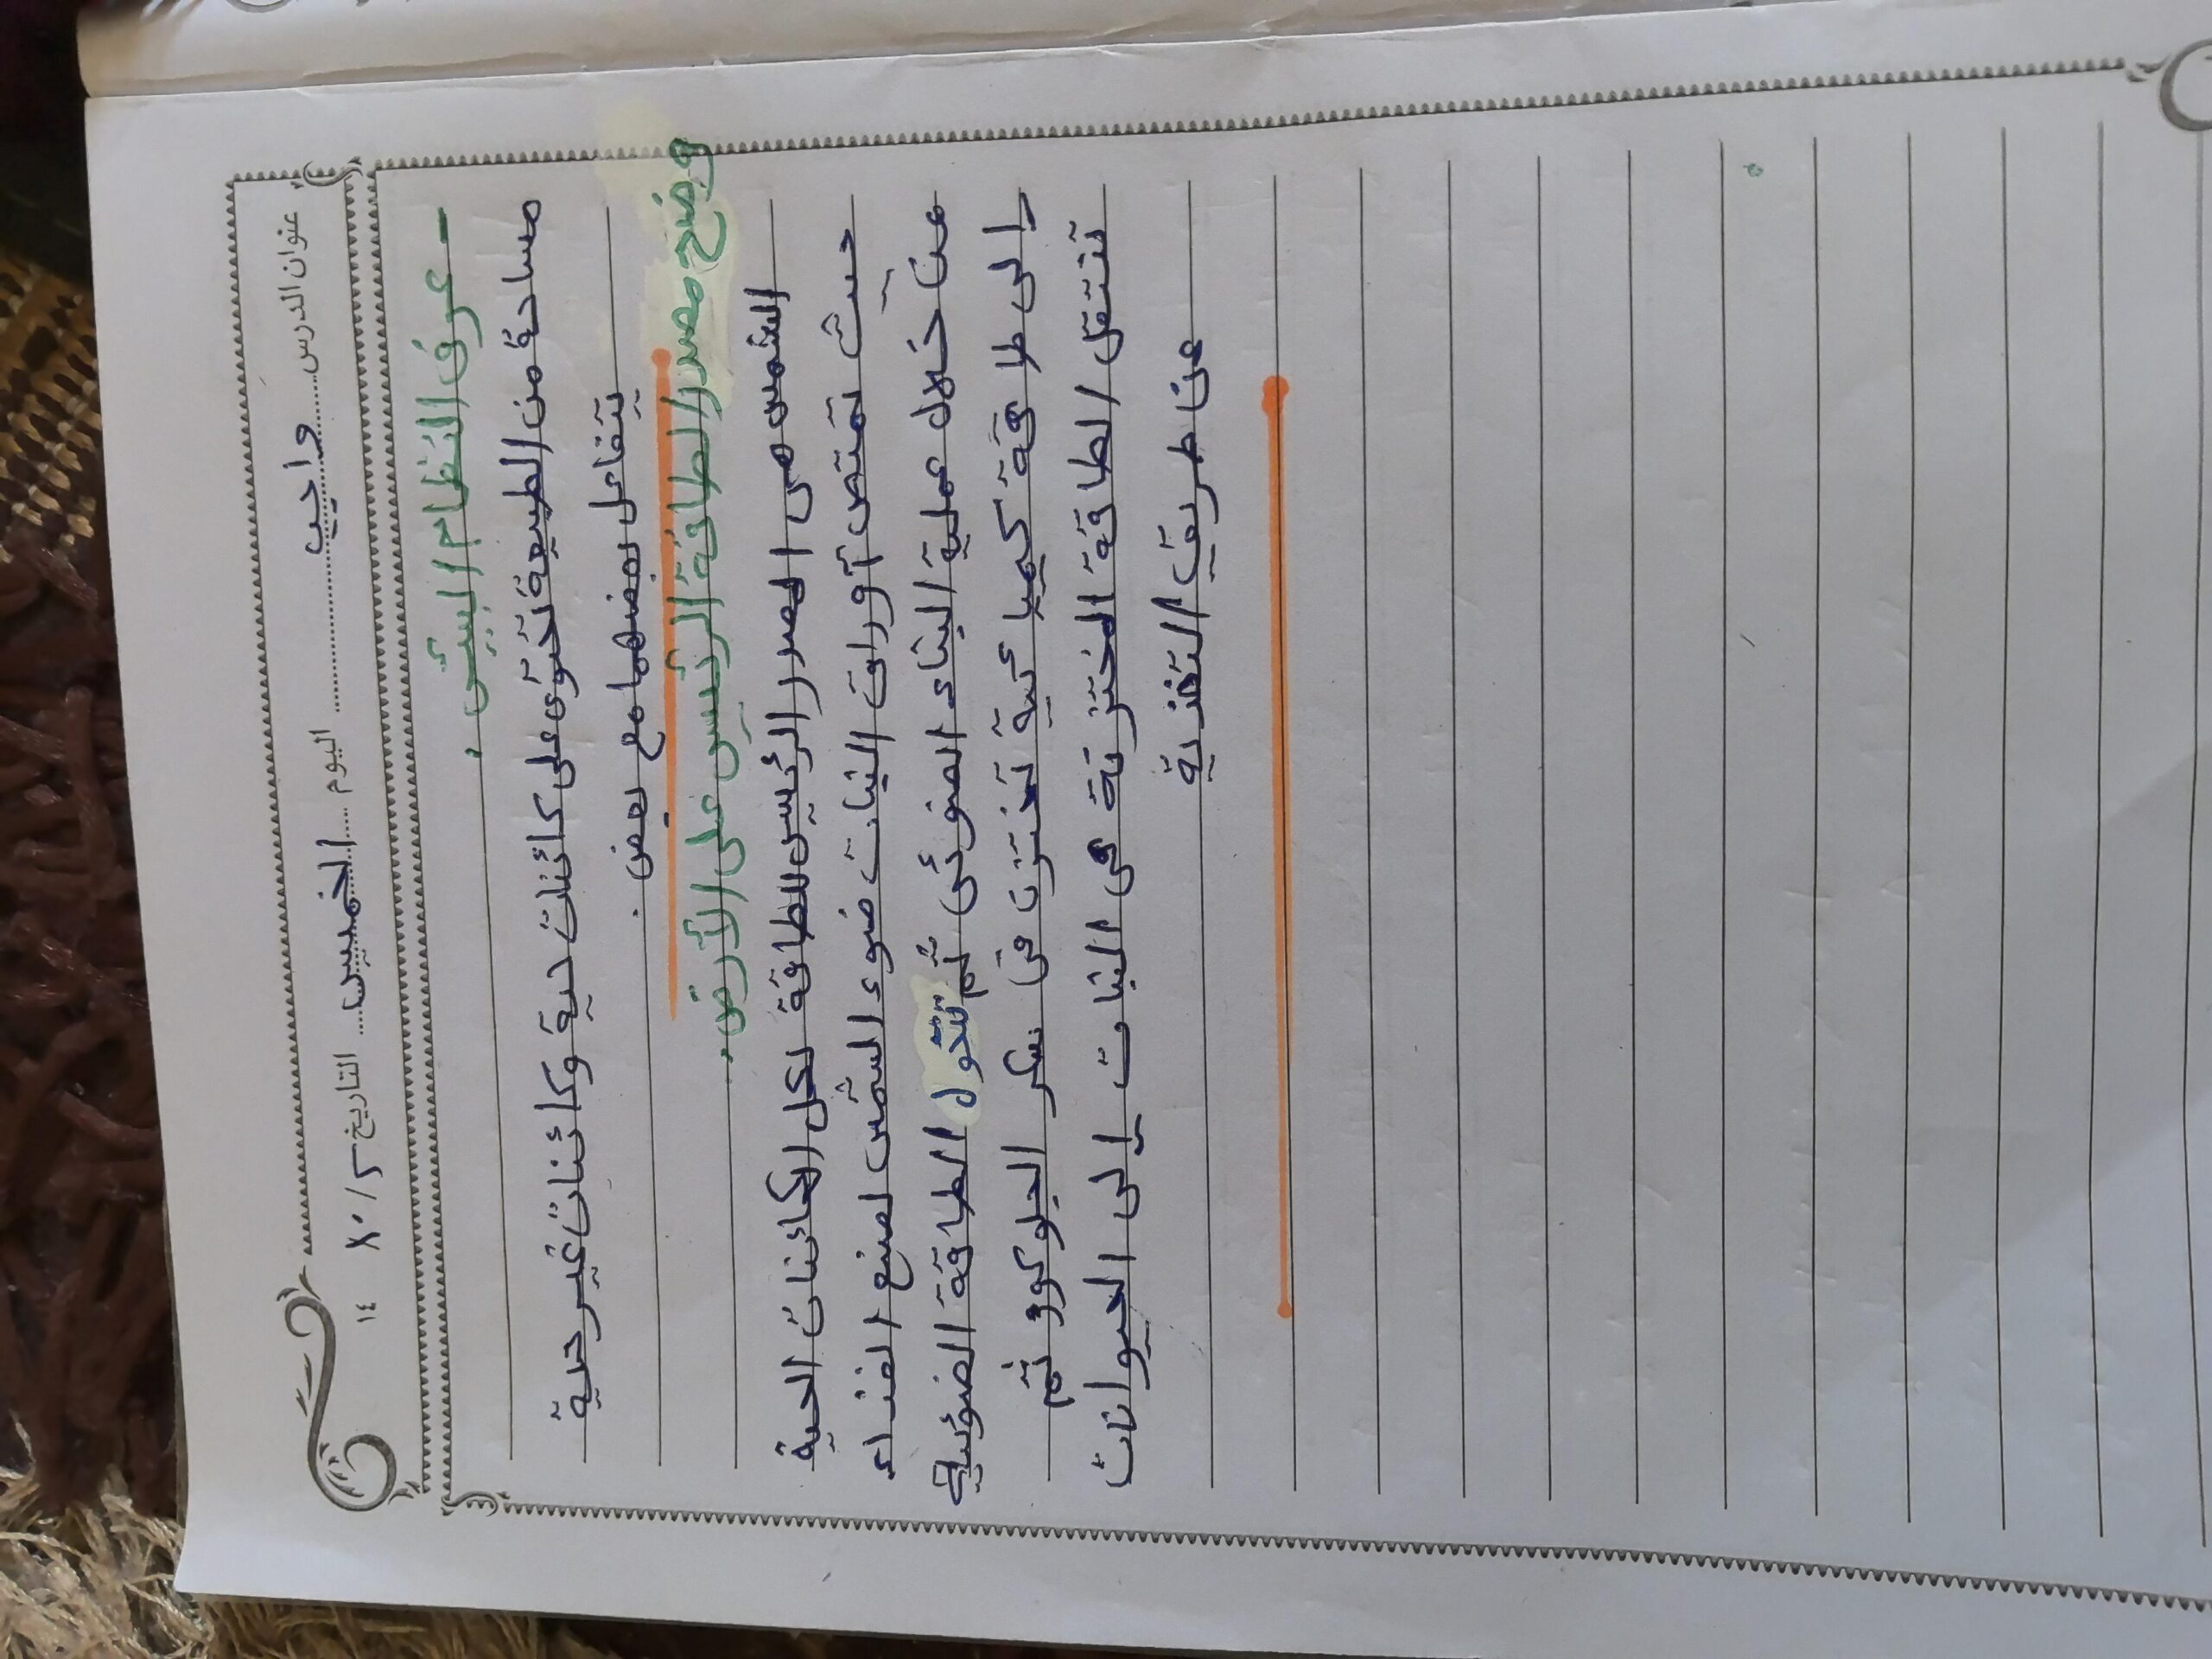 عنوان الدرس واجب اليوم الخميس التاريخ
١٤
- عرف النظام البيئى .
مساحة من الطبيعة تحتوى على كائنات حية وكائنات غير حية
يتفاعل بعضهما مع بعض .
وضح مصدر الطاقة الرئيسى على الأرض .
الشمس هى المصدر الرئيسى للطاقة لكل الكائنات الحية
حيث تمتص أوراق النبات ضوء الشمس لصنع الغذاء
من خلال عملية البناء الضوئى ثم تتحول الطاقة الضوئية
إلى طاقة كيميائية تختزن فى سكر الجلوكوز ثم
تنتقل الطاقة المختزنة فى النبات إلى الحيوانات
عن طريق التغذية